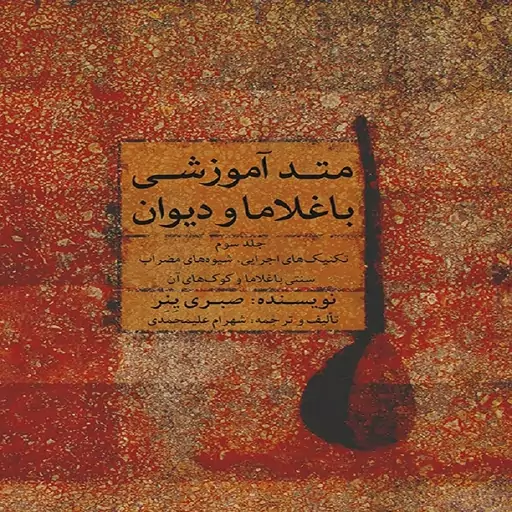 متد آموزشی
باغلاما و دیوان
جلد سوم
تکنیک‌های اجرایی، شیوه‌های مضراب
سنتی باغلاما و کوک‌های آن
نویسنده: صبری ینر
تألیف و ترجمه: شهرام علیمحمدی